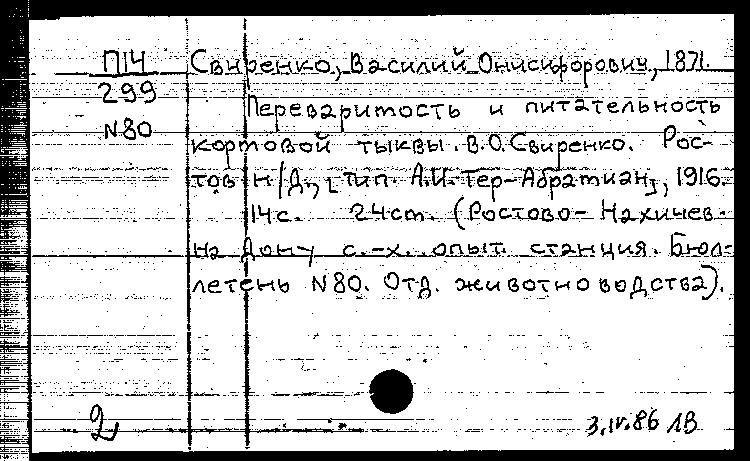 П14
299
N80
Свиренко, Василий Онисифорович, 1871.
Переваримость и питательность
кормовой тыквы. В.О.Свиренко. Рос-
тов н/Д., [тип. А.И. Тер-Абрамиан], 1916.
14с. 24см. (Ростово-Нахичев.
на Дону с.-х. опыт. станция. Бюл-
летень N80. Отд. животноводства).
2
3.IV.86 ЛВ